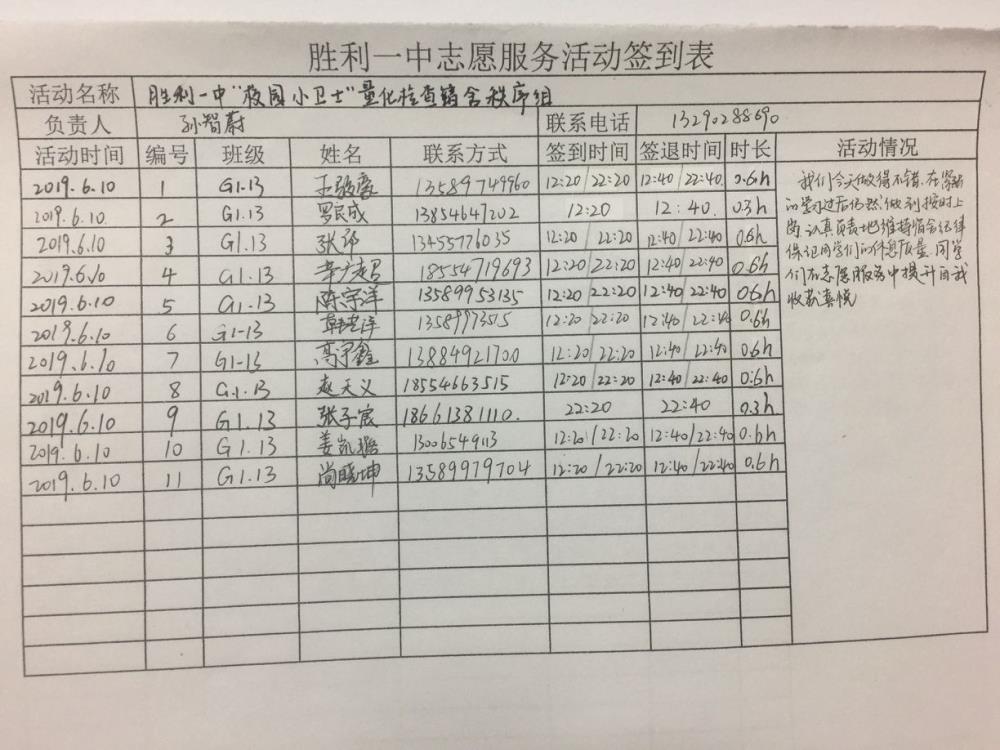 胜利一中志愿服务活动签到表
活动名称 胜利一中“校园小卫士”量化检查宿舍秩序组
负责人 孙智蔚 联系电话 13290288690
活动时间 编号 班级 姓名 联系方式 签到时间 签退时间 时长 活动情况
2019.6.10 1 G1.13 13589749960 12:20/22:20 12:40/22:40 0.6h
2019.6.10 2 G1.13 罗民成 13854647202 12:20 12:40. 0.3h
2019.6.10 3 G1.13 13455776035 12:20 22:20 12:40/22:40 0.6h
2019.6.10 4 G1.13 18554719693 12:20/22:20 12:40 22:40 0.6h
2019.6.10 5 G1.13 陈宗洋 13589953135 12:20 22:20 12:40 22:40 0.6h
2019.6.10 6 G1-13 12:20/22:20 12:40/22:40 0.6h
2019.6.10 7 G1-13 高宇鑫 13884921700 12:20/22:20 12:40/22:40 0.6h
2019.6.10 8 G1.13 赵天义 18554663515 12:20/22:20 12:40/22:40 0.6h
2019.6.10 9 G1.13 张子宸 18661381110. 22:20 22:40 0.3h
2019.6.10 10 G1.13 13006549113 12:20/22:20 12:40/22:40 0.6h
2019.6.10 11 G1.13 尚晓坤 13589979704 12:20/22:20 12:40/22:40 0.6h
我们今天做得不错,在紧张
的学习过后仍然做到按时上
岗,认真负责地维持宿舍纪律
保证同学们的休息质量.同学
们在志愿服务中提升自我
收获真悦